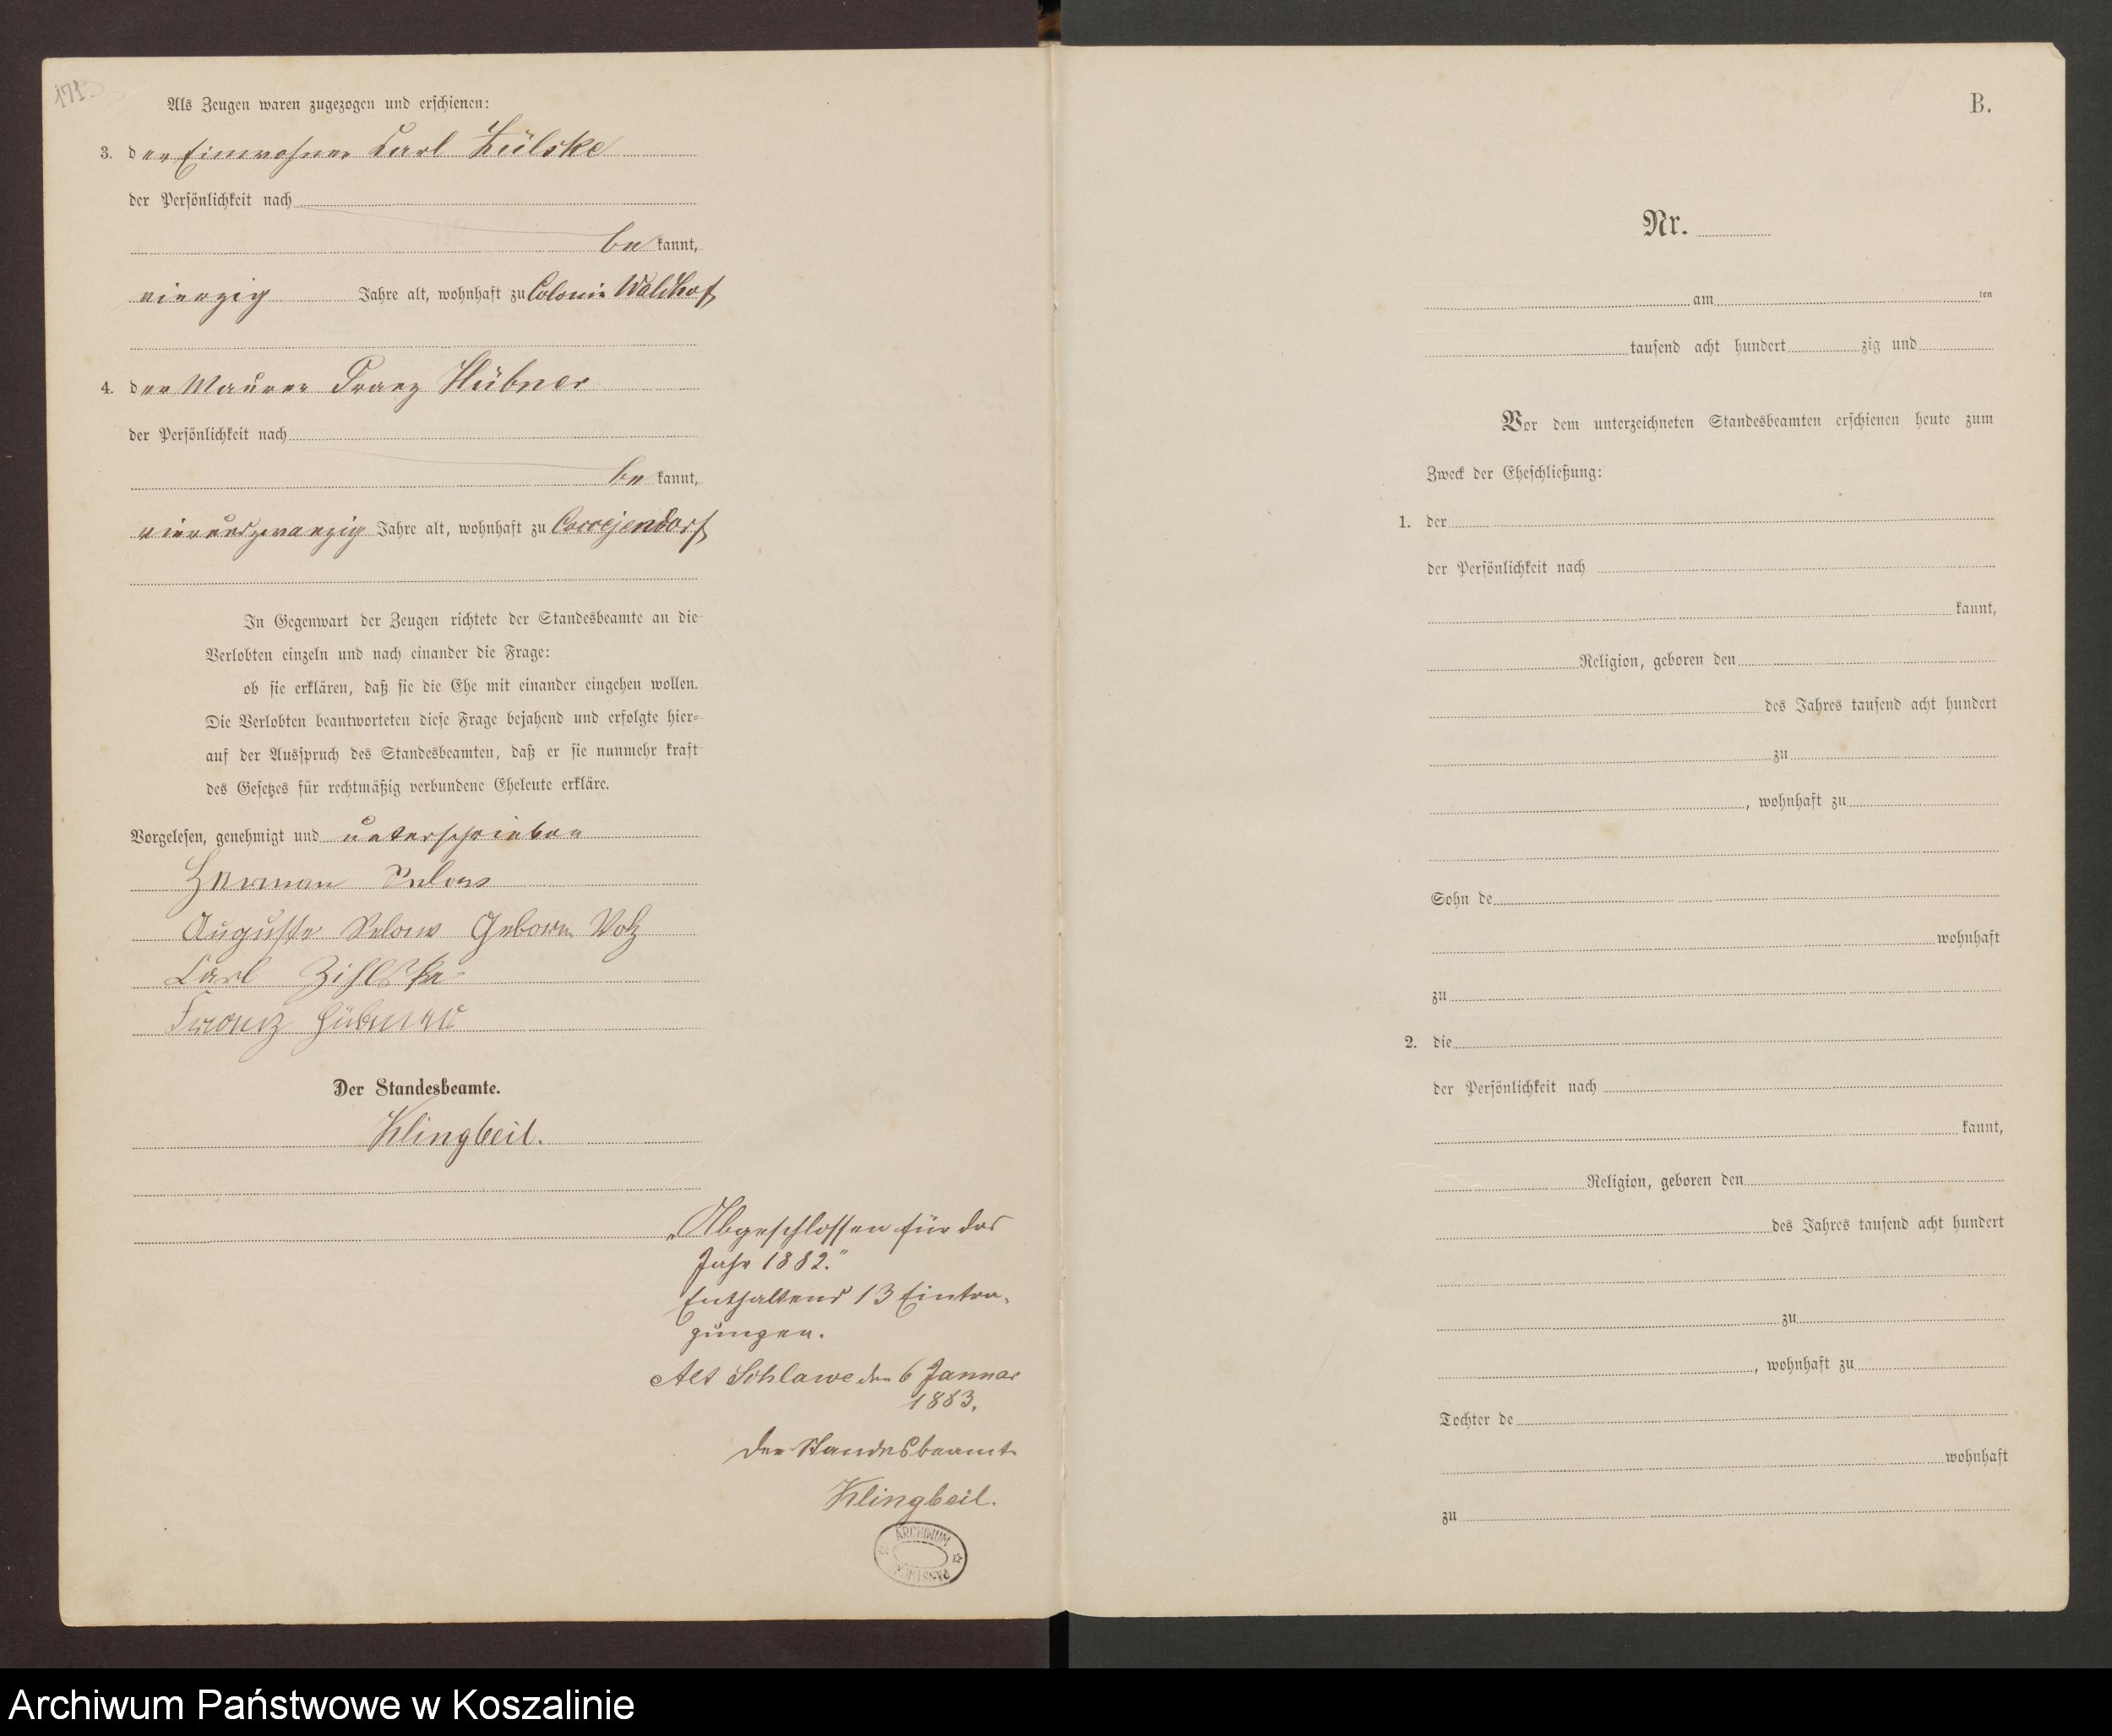 171.
Als Zeugen waren zugezogen und erschienen:
3. der Einwohner Carl Zülske
der Persönlichkeit nach
bekannt,
vierzig Jahre alt, wohnhaft zu Colonie Waldhof
4. der Maurer Franz Hübner
der Persönlichkeit nach
bekannt,
vierundzwanzig Jahre alt, wohnhaft zu Coccejendorf
In Gegenwart der Zeugen richtete der Standesbeamte an die
Verlobten einzeln und nach einander die Frage:
ob sie erklären, daß sie die Ehe mit einander eingehen wollen.
Die Verlobten beantworteten diese Frage bejahend und erfolgte hier=
auf der Ausspruch des Standesbeamten, daß er sie nunmehr kraft
des Gesetzes für rechtmäßig verbundene Eheleute erkläre.
Vorgelesen, genehmigt und unterschrieben
Herman Selow
Auguste Selow Geborn Volz
Carl
Franz Hübner
Der Standesbeamte.
Klingbeil.
„Abgeschlossen für das
Jahr 1882."
Enthaltend 13 Eintra-
gungen.
Alt Schlawe den 6 Januar
1883.
Der Standesbeamte
Klingbeil.
ARCHIWUM
B.
Nr.
am ten
tausend acht hundert zig und
Vor dem unterzeichneten Standesbeamten erschienen heute zum
Zweck der Eheschließung:
1. der
der Persönlichkeit nach
kannt,
Religion, geboren den
des Jahres tausend acht hundert
zu
, wohnhaft zu
Sohn de
wohnhaft
zu
2. die
der Persönlichkeit nach
kannt,
Religion, geboren den
des Jahres tausend acht hundert
zu
, wohnhaft zu
Tochter de
wohnhaft
zu
Archiwum Państwowe w Koszalinie